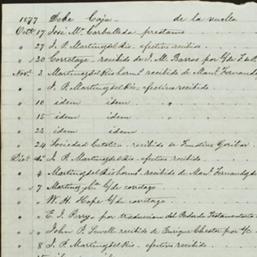 1877 Debe Caja de la vuelta
Octe 17 José Ma. Carballeda prestamo
" 27 J. P. Martinez del Rio. efectivo recibido
" 20 Corretage, recibido de J. M. Barros por c/de
Nove 2 Martinez del Rio hermd. recibido de Manl. Fernandez
" " J. P. Martinez del Rio. efectivo recibido
" 10 idem idem
" 15 idem idem
" 22 idem idem
" 24 Sociedad Catolica. recibido de
Dice 1o J. P. Martinez del Rio. efectvo recibido
" 4 Martinez del Rio hermd. recibido de Manl. Fernandez
" 7 Martinez y Ca. c/de corretage
" " W. H. Hope c/de corretage
" " E. J. Perry. por traduccion del Testamentaria
" " John P. Lowell recibido de Enrique Chester por c/
" 8 J. P. Martinez del Rio. efectivo recibido